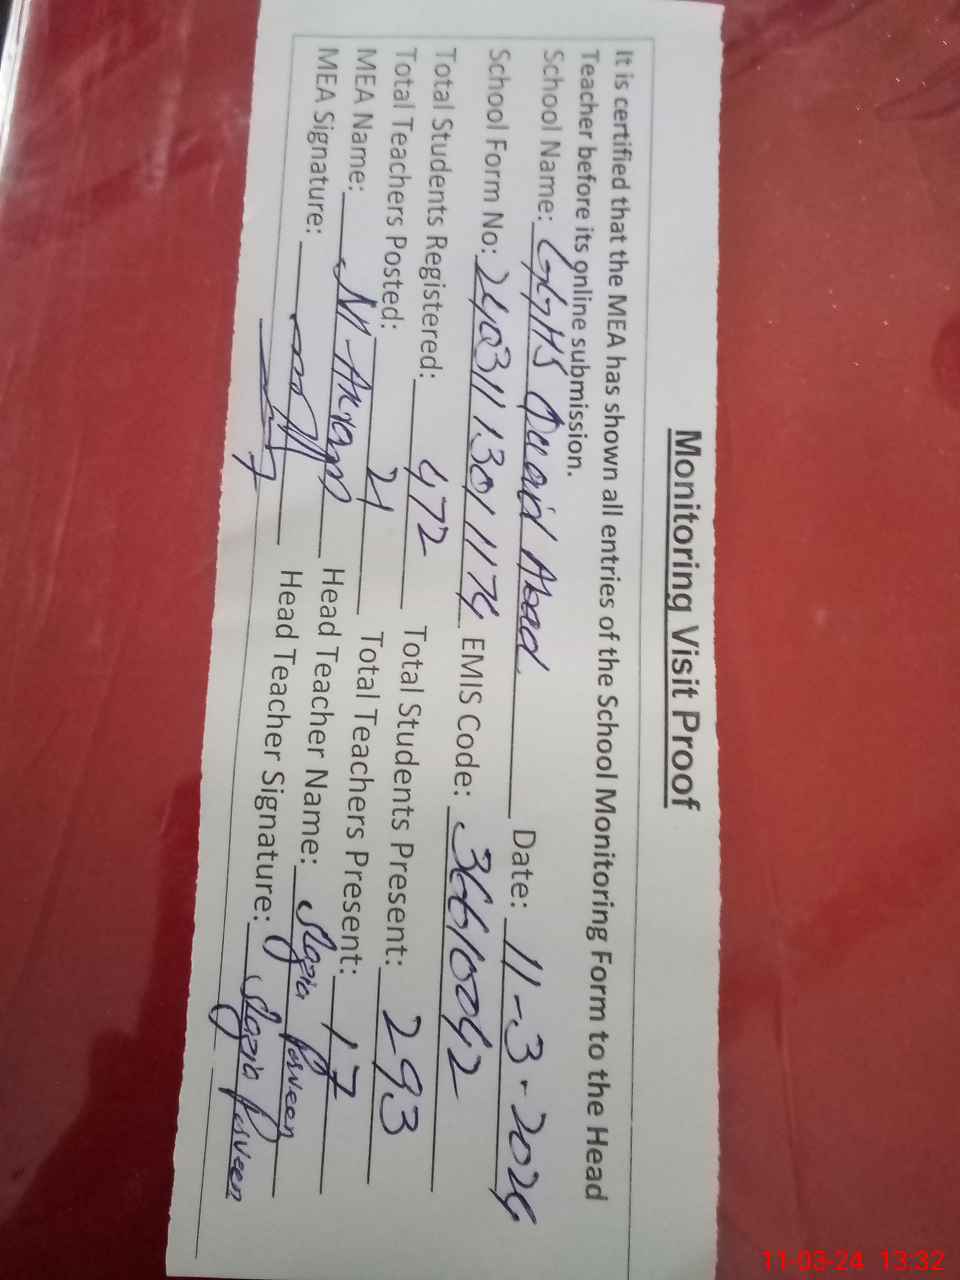 Monitoring Visit Proof
It is certified that the MEA has shown all entries of the School Monitoring Form to the Head
Teacher before its online submission.
School Name: GGHS Quaid Abad Date: 11-3-2024
School Form No: 24031113011174 EMIS Code: 36610042
Total Students Registered: 472 Total Students Present: 293
Total Teachers Posted: 21 Total Teachers Present: 17
MEA Name: M-Akram Head Teacher Name: Parveen
MEA Signature: Head Teacher Signature: Parveen
11-03-24 13:32